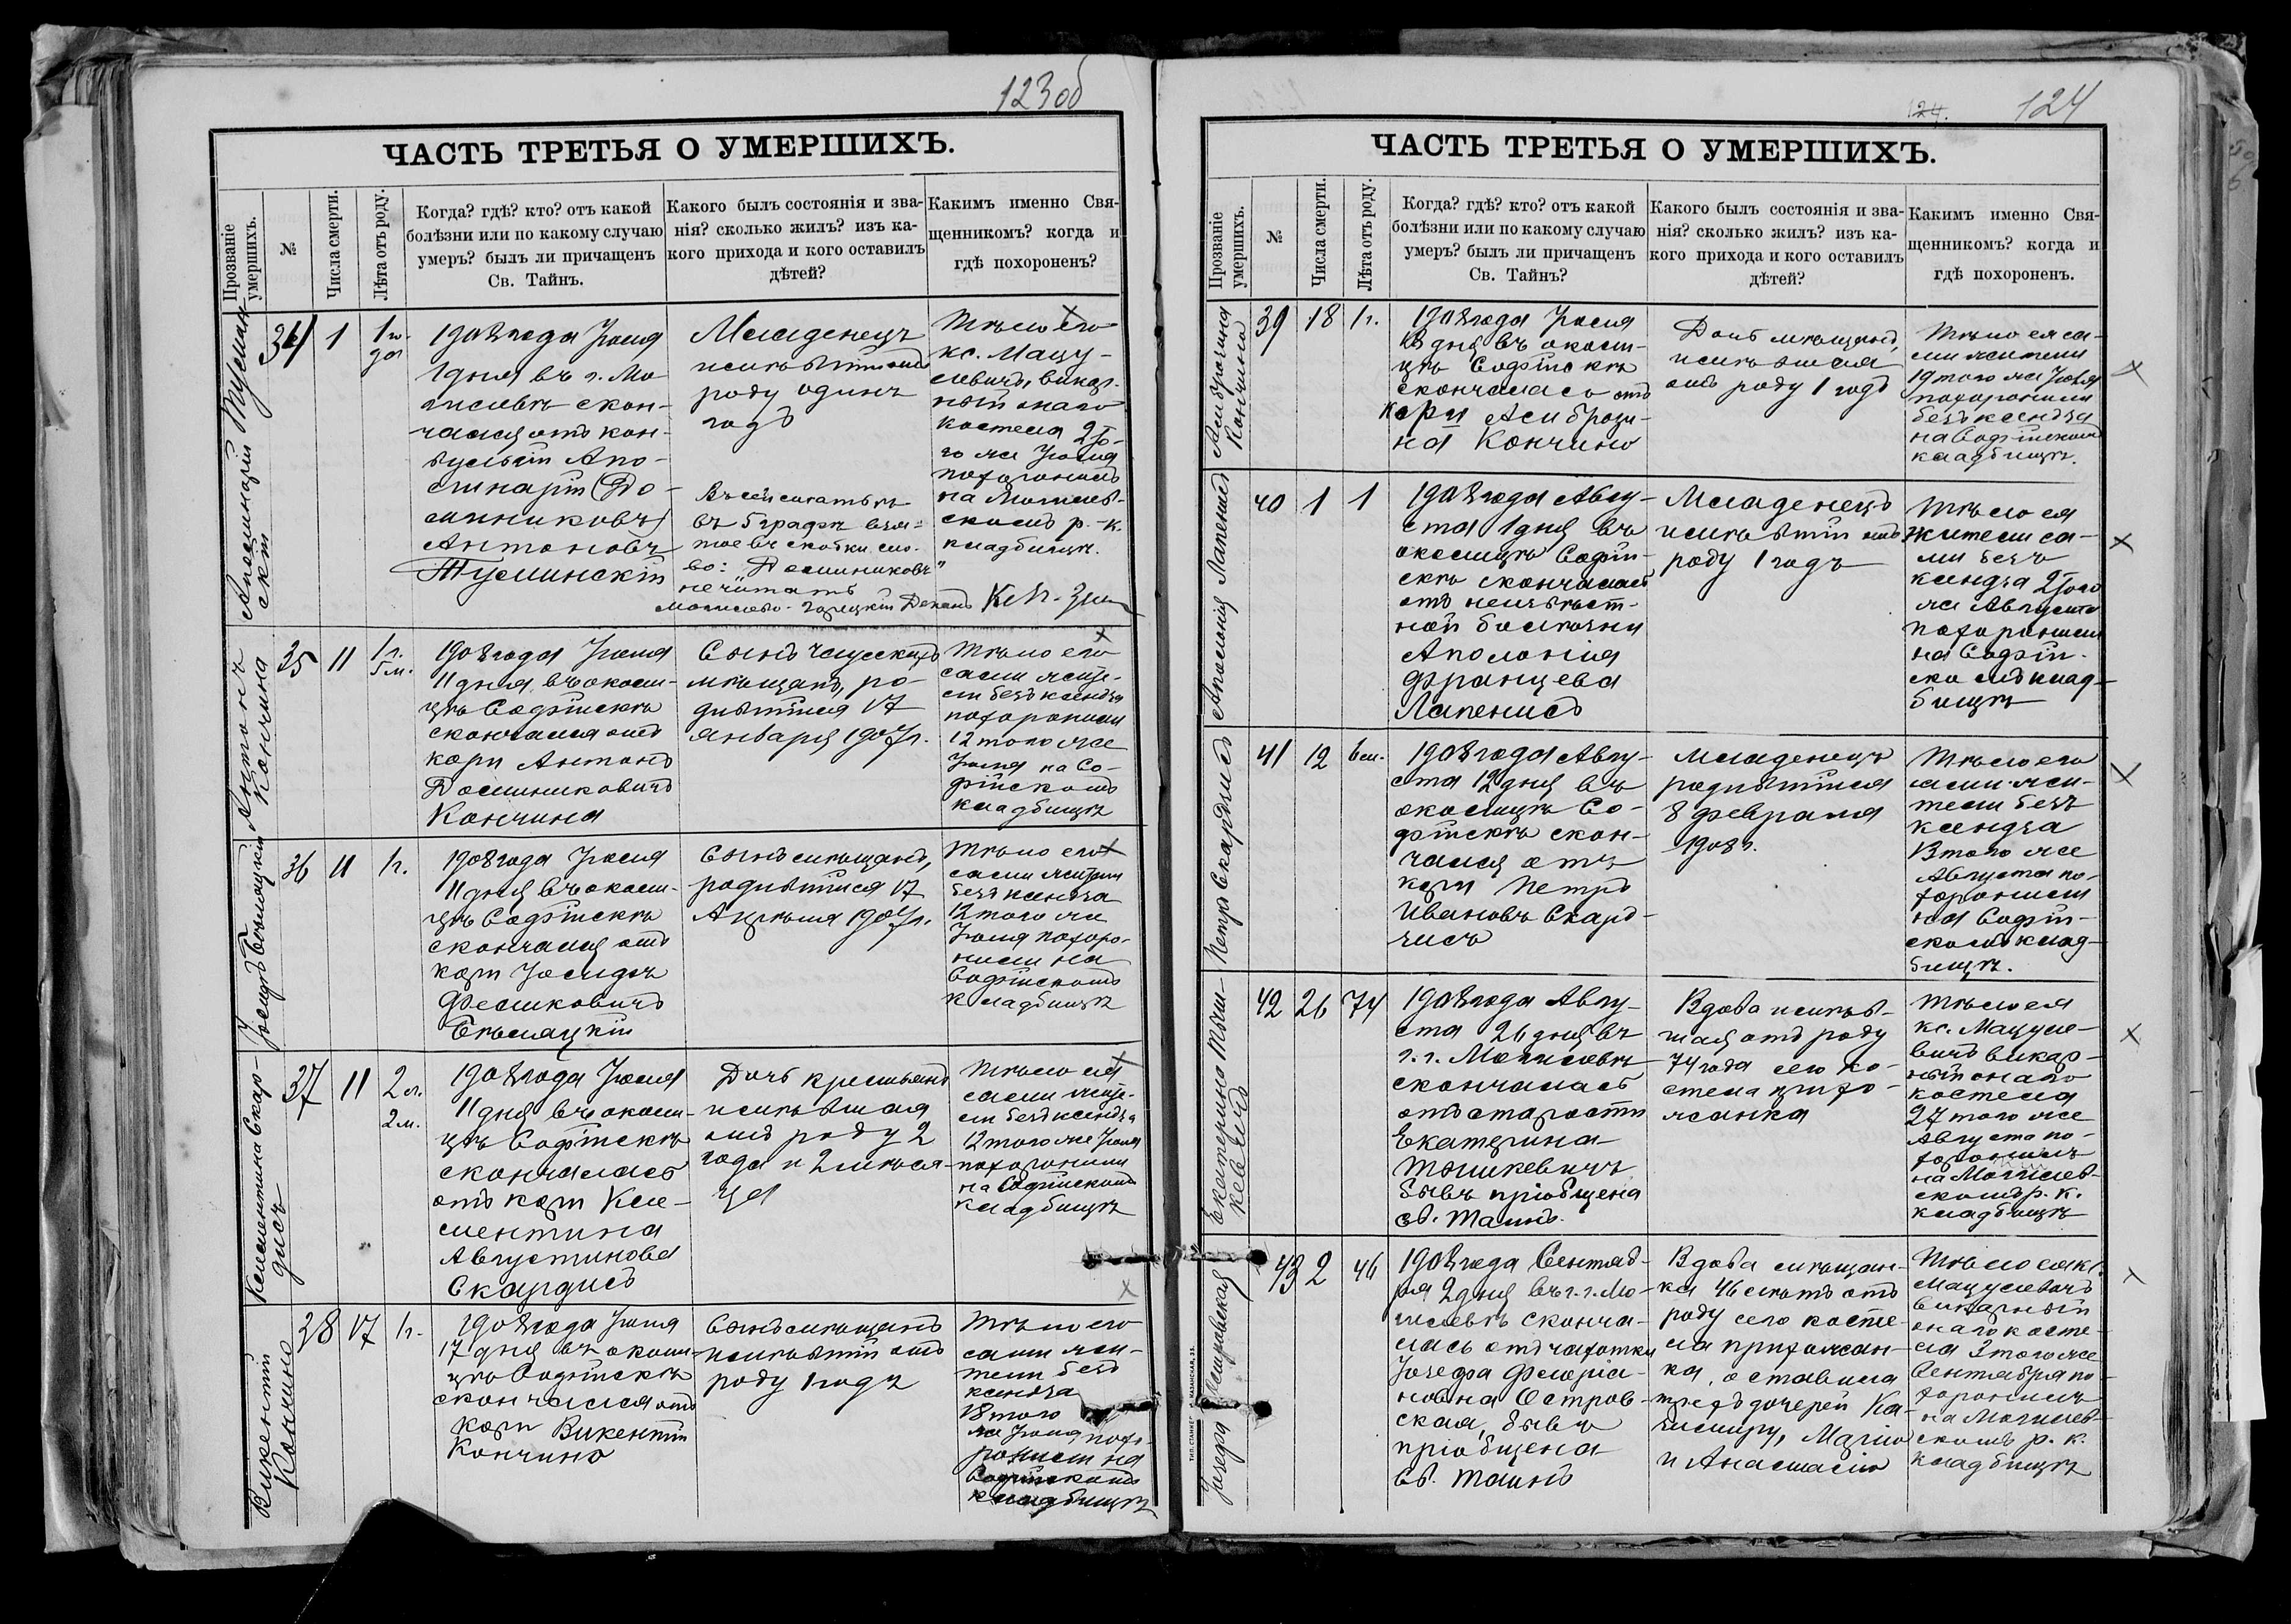 123об
ЧАСТЬ ТРЕТЬЯ О УМЕРШИХЪ.
Прозваніе умершихъ.
№
Числа смерти.
Лѣта отъ роду.
Когда? гдѣ? кто? отъ какой
болѣзни или по какому случаю
умеръ? былъ ли причащенъ
Св. Тайнъ.
Какого былъ состоянія и зва-
нія? сколько жилъ? изъ ка-
кого прихода и кого оставилъ
дѣтей?
Какимъ именно Свя-
щенникомъ? когда и
гдѣ похороненъ?
Аполинарій
34
1
1 го-
да
1908 года Іюля
1 дня въ г. Мо
гилевѣ скон-
чался отъ кон-
вульсій Апо-
линарій (До-
миниковъ)
Антоновъ
Тусминскій
Младенецъ
имѣвшій отъ
роду одинъ
годъ
Въ сей статьѣ
въ 5 графѣ взя-
тое въ скобки сло-
во: "Доминиковъ"
не читать
Могилево-Горецкій Деканъ
Тѣло его
кс. Мацу-
левичъ, викар-
ный онаго
костела 2го
того же Іюля
похоронилъ
на Могилев-
скомъ р.-к.
кладбищѣ.
Антонъ
Кончина
35
11
1 г.
5 м.
1908 года Іюля
11 дня въ околи-
цѣ Софійскѣ
скончался отъ
кори Антонъ
Доминиковичъ
Кончина
Сынъ Чаусскихъ
мѣщанъ, ро-
дившійся 17
января 1907 г.
Тѣло его
сами жите-
ли безъ ксендза
похоронили
12 того же
Іюля на Со-
фійскомъ
кладбищѣ
Іосифъ Бѣляцкій
36
11
1 г.
1908 года Іюля
11 дня въ околи-
цѣ Софійскѣ
скончался отъ
кори Іосифъ
Феликовичъ
Бѣляцкій
Сынъ мѣщанъ,
родившійся 17
Апрѣля 1907 г.
Тѣло его
сами жители
безъ ксендза
12 того же
Іюля похоро-
нили на
Софійскомъ
кладбищѣ
Клементина Скар-
дисъ
37
11
2 г.
2 м.
1908 года Іюля
11 дня въ околи-
цѣ Софійскѣ
скончалась
отъ кори Кле-
ментина
Августинова
Скардисъ
Дочь крестьянъ
имѣвшая
отъ роду 2
года и 2 мѣся-
ца
Тѣло ея
сами жите-
ли безъ ксендза
12 того же Іюля
похоронили
на Софійскомъ
кладбищѣ
Викентій
Кончино
38
17
1 г.
1908 года Іюля
17 дня въ околи-
цѣ Софійскѣ
скончался отъ
кори Викентій
Кончино
Сынъ мѣщанъ
имѣвшій отъ
роду 1 годъ
Тѣло его
сами жи-
тели безъ
ксендза
18 того
же Іюля похо-
ронили на
Софійскомъ
кладбищѣ
124.
124
ЧАСТЬ ТРЕТЬЯ О УМЕРШИХЪ.
Прозваніе умершихъ.
№
Числа смерти.
Лѣта отъ роду.
Когда? гдѣ? кто? отъ какой
болѣзни или по какому случаю
умеръ? былъ ли причащенъ
Св. Тайнъ?
Какого былъ состоянія и зва-
нія? сколько жилъ? изъ ка-
кого прихода и кого оставилъ
дѣтей?
Какимъ именно Свя-
щенникомъ? когда и
гдѣ похороненъ.
Амброзина
Кончино
39
18
1 г.
1908 года Іюля
18 дня въ околи-
цѣ Софійскѣ
скончалась отъ
кори Амбрози-
на Кончино
Дочь мѣщанъ,
имѣвшая
отъ роду 1 годъ
Тѣло ея са-
ми жители
19 того же Іюля
похоронили
безъ ксендза
на Софійскомъ
кладбищѣ.
Аполонія Лапенисъ
40
1
1
1908 года Авгу-
ста 1 дня въ
околицѣ Софій-
скѣ скончалась
отъ неизвѣст-
ной болѣзни
Аполонія
Францева
Лапенисъ
Младенецъ
имѣвшій отъ
роду 1 годъ
Тѣло ея
жители са-
ми безъ
ксендза 2 того
же Августа
похоронили
на Софій-
скомъ клад-
бищѣ
Петръ Скардзисъ
41
12
6 м.
1908 года Авгу-
ста 12 дня въ
околицѣ Со-
фійскѣ скон-
чался отъ
кори Петръ
Ивановъ Скард-
зисъ
Младенецъ
родившійся
8 февраля
1908 г.
Тѣло его
сами жи-
тели безъ
ксендза
13 того же
Августа по-
хоронили
на Софій-
скомъ клад-
бищѣ.
Екатерина Тыш-
кевичъ
42
26
74
1908 года Авгу-
ста 26 дня въ
г. г. Могилевѣ
скончалась
отъ старости
Екатерина
Тышкевичъ
бывъ пріобщена
св. Таинъ.
Вдова имѣв-
шая отъ роду
74 года сего ко-
стела прихо-
жанка
Тѣло ея
кс. Мацуле-
вичъ викар-
ный онаго
костела
27 того же
Августа по-
хоронилъ
на Могилев-
скомъ р. к.
кладбищѣ
Іозефа Островская
43
2
46
1908 года Сентяб-
ря 2 дня въ г. г. Мо-
гилевѣ сконча-
лась отъ чахотки
Іозефа Флоріа-
новна Остров-
ская, бывъ
пріобщена
Св. Таинъ
Вдова мѣщан-
ка 46 лѣтъ отъ
роду сего косте-
ла прихожан-
ка, оставила
трехъ дочерей Ка-
зимиру, Марію
и Анастасію
Тѣло ея кс.
Мацулевичъ
Викарный
онаго косте-
ла 3 того же
Сентября по-
хоронилъ
на Могилев-
скомъ р. к.
кладбищѣ
ТИП. СТАНКЕ КАЗАНСКАЯ, 33.